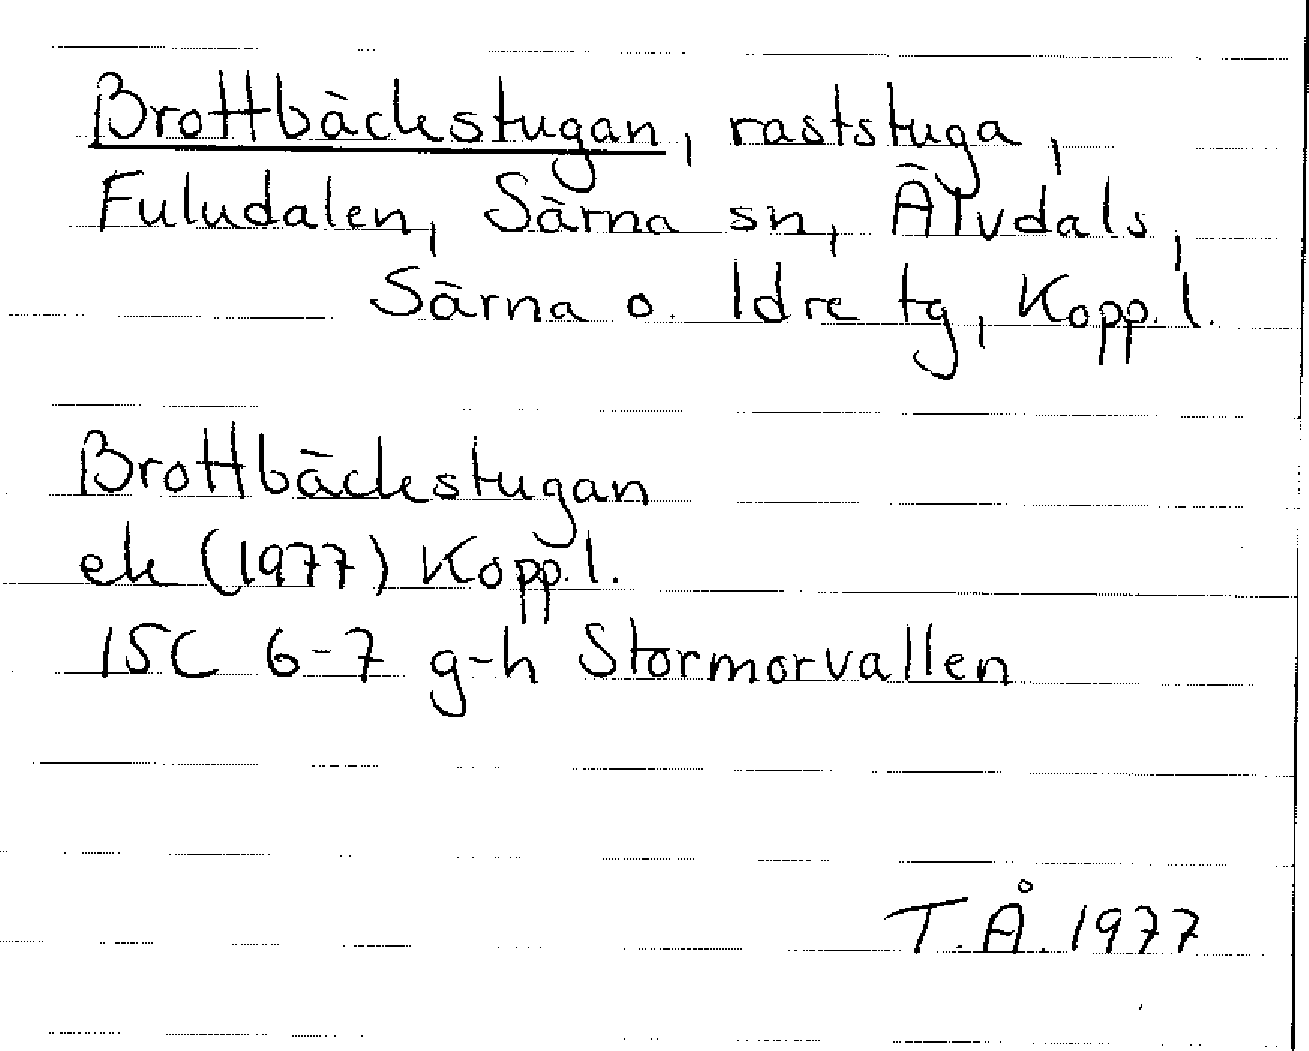 Brottbäckstugan, raststuga,
Fuludalen, Särna sn, Älvdals,
Särna o. Idre tg, Kopp. l.
Brottbäckstugan
ek (1977) Kopp. l.
15C 6-7 g-h Stormorvallen
T.Å. 1977